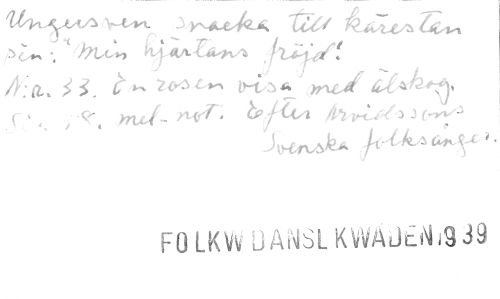 Ungersven snacka till kärestan
sin: "Min hjärtans fröjd!
N:a. 33. En rosen visa med älskog.
mel-not. Efter Arvidssons
Svenska folksånger.
FOLKW DANSL KWÄDEN 1939